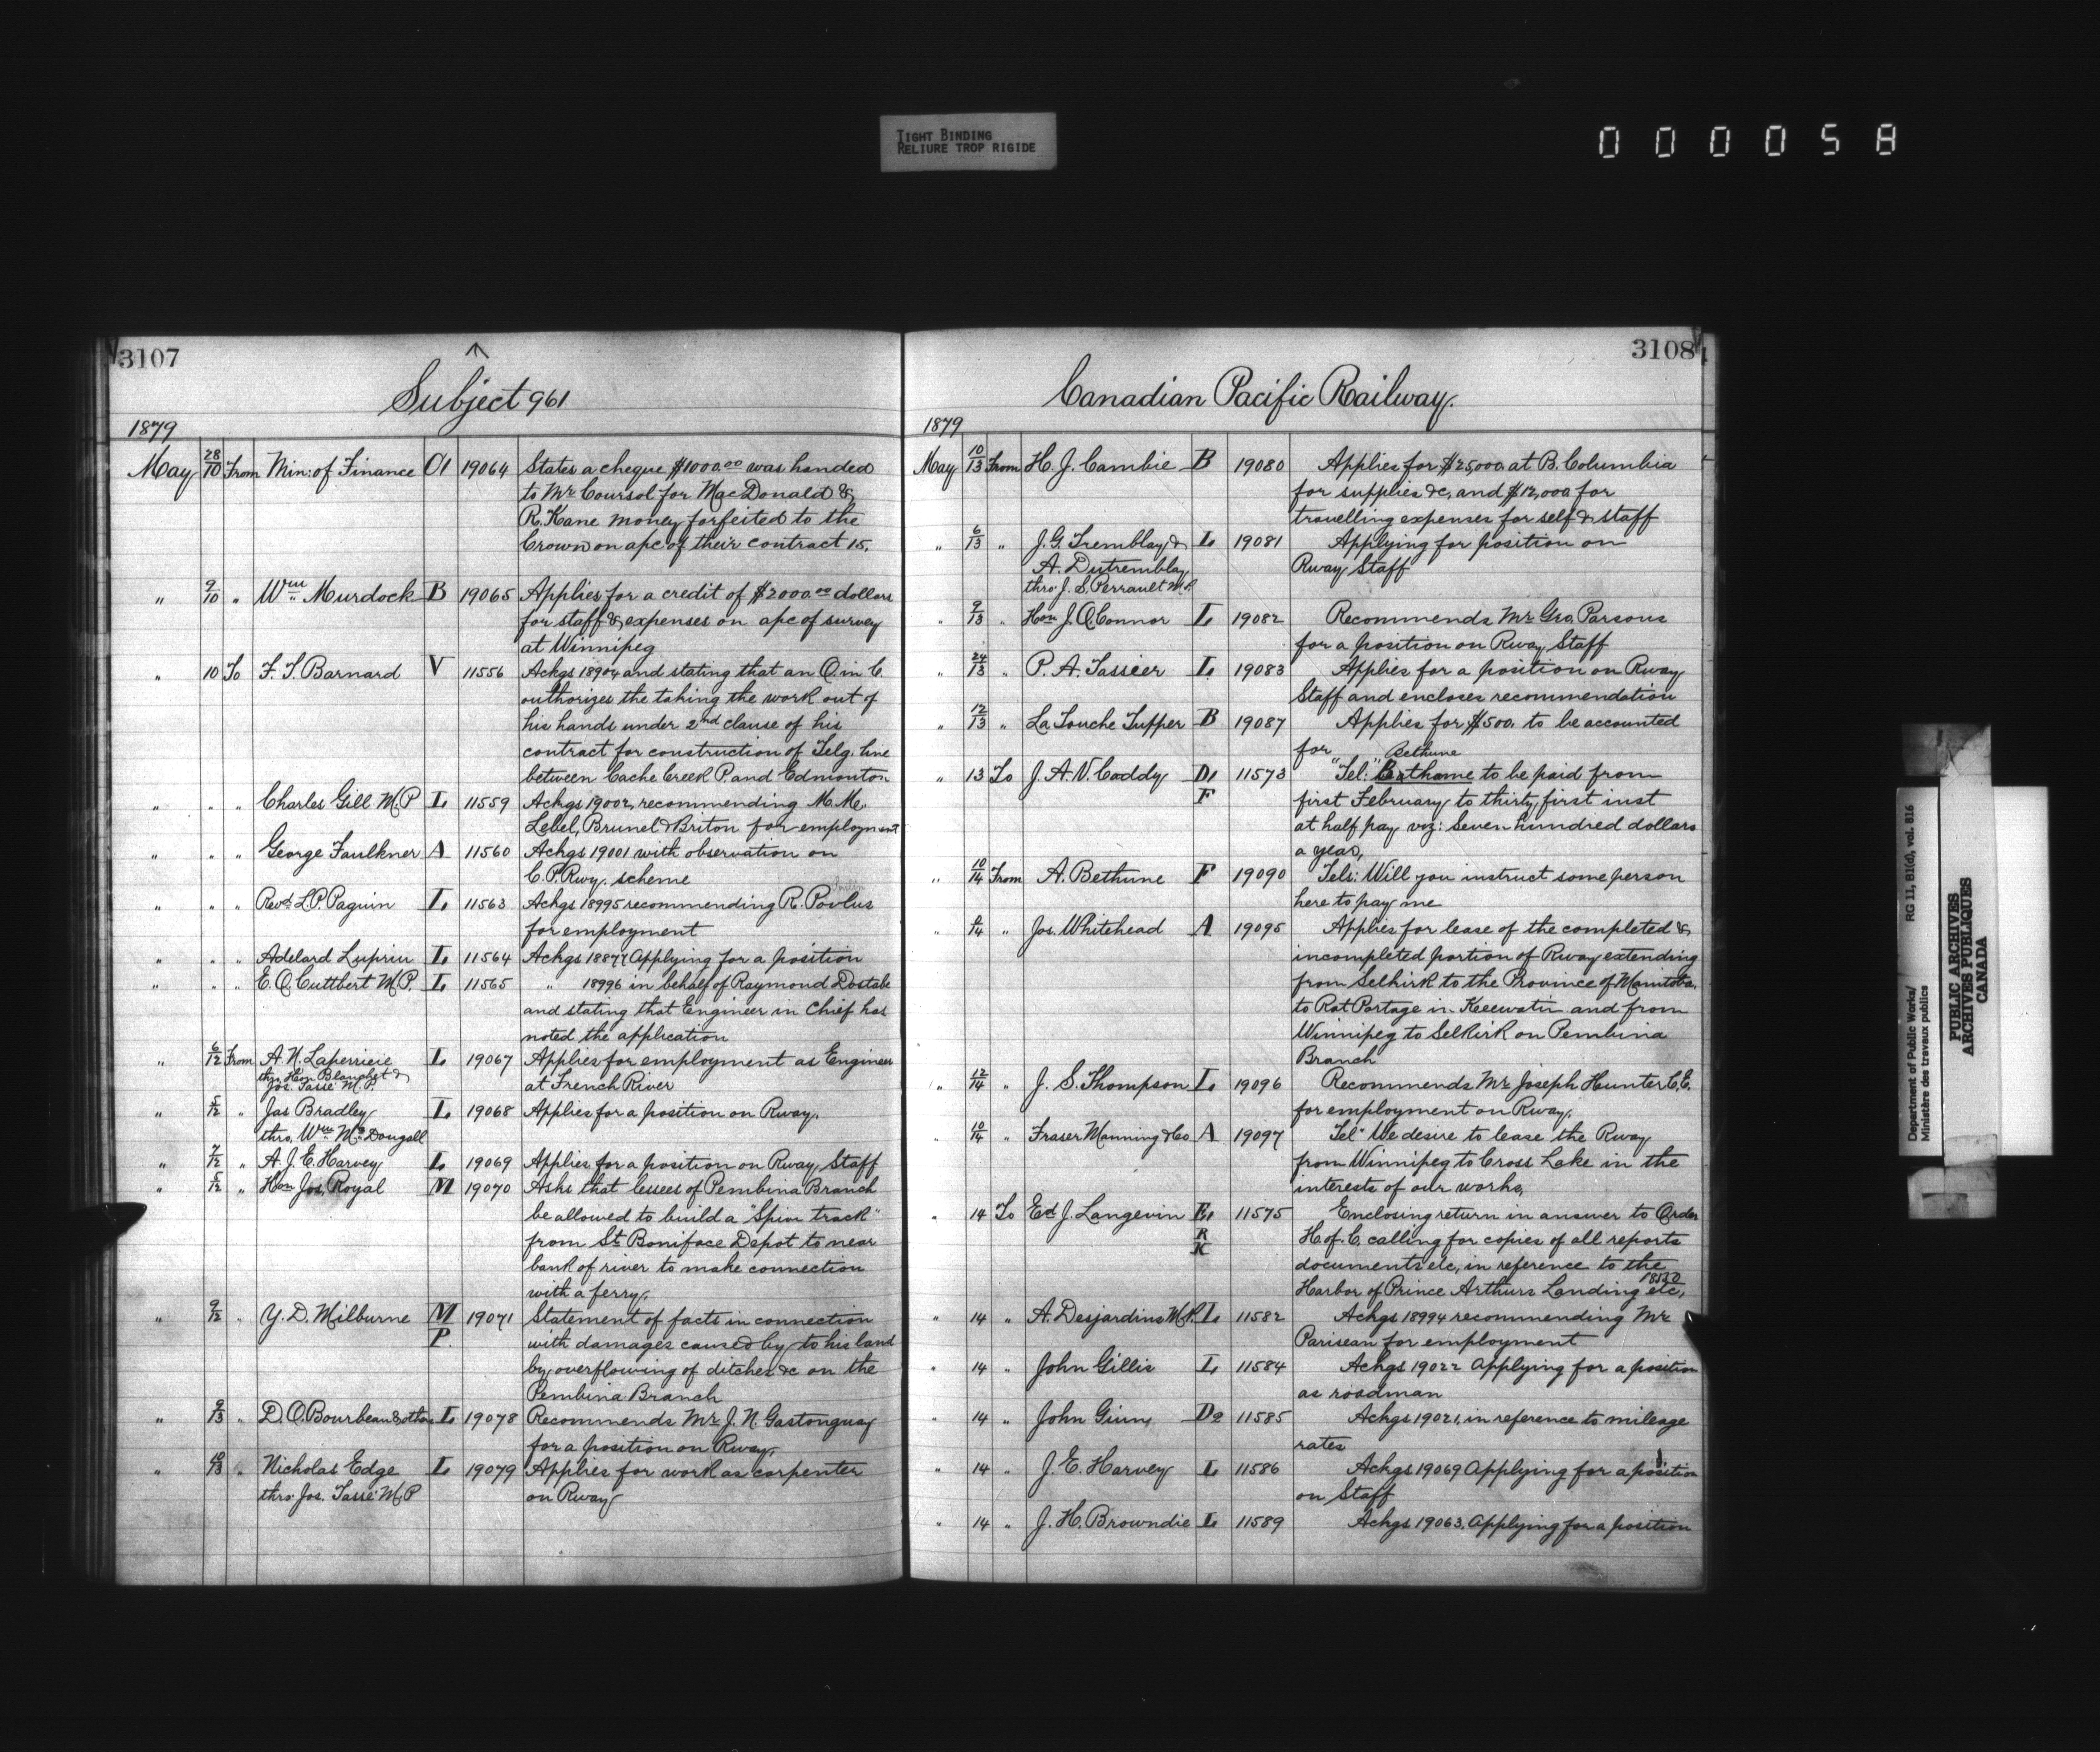 TIGHT BINDING
RELIURE TROP RIGIDE
000058
3107
Subject 961
1879
May 28/10 From Min: of Finance C1 19064 States a cheque $1000.00 was handed
to Mr Coursol for MacDonald &
R. Kane money forfeited to the
Crown on a/c of their contract 15.
" 9/10 " Wm Murdock B 19065 Applies for a credit of $2000.00 dollars
for staff & expenses on a/c of survey
at Winnipeg
" 10 To F. J. Barnard V 11556 Ackgs 18904 and stating that an O. in C.
authorizes the taking the work out of
his hands under 2nd clause of his
contract for construction of Telg. line
between Cache Creek P. and Edmonton
" " " Charles Gill M.P L 11559 Ackgs 19002, recommending M. Me.
Lebel, Brunel & Briton for employment
" " " George Faulkner A 11560 Ackgs 19001 with observation on
C. P. Rwy. scheme
" " " Revd L. P. Paquin L 11563 Ackgs 18995 recommending R. Povlus
for employment
" " " Adelard Luprin L 11564 Ackgs 18877 Applying for a position
" " " E. O. Cuttbert M.P. L 11565 " 18996 in behalf of Raymond Dostale
and stating that Engineer in Chief has
noted the application
" 6/12 From A. N. Laperriere L 19067 Applies for employment as Engineer
thro Hon Blanchet &
Jos. Tassé M.P. at French River
" 5/12 " Jas Bradley L 19068 Applies for a position on Rway.
thro. Wm McDougall
" 7/12 " A. J. E. Harvey L 19069 Applies for a position on Rway Staff
" 5/12 " Hon Jos. Royal M 19070 Asks that lessees of Pembina Branch
be allowed to build a "Spur track"
from St Boniface Depot to near
bank of river to make connection
with a ferry.
" 9/12 " Y. D. Milburne M 19071 Statement of facts in connection
P. with damages caused by to his land
by overflowing of ditches &c on the
Pembina Branch
" 9/13 " D. O. Bourbeau & others L 19078 Recommends Mr. J. N. Gastonguay
for a position on Rway.
" 10/13 " Nicholas Edge L 19079 Applies for work as carpenter
thro Jos. Tassé M.P on Rway
3108
Canadian Pacific Railway.
1879
May 10/13 From H. J. Cambie B 19080 Applies for $25,000 at B. Columbia
for supplies &c, and $12,000 for
travelling expenses for self & staff
" 6/13 " J. G. Tremblay & L 19081 Applying for position on
A. Dutremblay Rway Staff
thro J. S. Perrault M.P.
" 9/13 " Hon J. O'Connor L 19082 Recommends Mr Geo. Parsons
for a position on Rway Staff
" 24/13 " P. A. Tassier L 19083 Applies for a position on Rway
Staff and encloses recommendation
" 12/13 " La Touche Tupper B 19087 Applies for $500. to be accounted
for
Bethune
" 13 To J. A. N. Coddy D1 11573 "Tel:" Bethame to be paid from
F first February to thirty first inst
at half pay viz: Seven hundred dollars
a year,
" 10/14 From A. Bethune F 19090 Tels: Will you instruct some person
here to pay me
" 6/14 " Jos. Whitehead A 19095 Applies for lease of the completed &
incompleted portion of Rway extending
from Selkirk to the Province of Manitoba,
to Rat Portage in Keewatin and from
Winnipeg to Selkirk on Pembina
Branch
" 12/14 " J. S. Thompson L 19096 Recommends Mr Joseph Hunter C.E.
for employment on Rway.
" 10/14 " Fraser Manning & Co A 19097 Tel" We desire to lease the Rway
from Winnipeg to Cross Lake in the
interests of our works.
" 14 To Ed J. Langevin E1 11575 Enclosing return in answer to Order
R H. of C. calling for copies of all reports
K documents etc, in reference to the
Harbor of Prince Arthurs Landing etc,
" 14 " A. Desjardins M.P. L 11582 Ackgs 18994 recommending Mr
Parisean for employment
" 14 " John Gillis L 11584 Ackgs 19022 Applying for a position
as roadman
" 14 " John Ginn D2 11585 Ackgs 19021, in reference to mileage
rates
" 14 " J. E. Harvey L 11586 Ackgs 19069 Applying for a position
on Staff
" 14 " J. H. Browndie L 11589 Ackgs 19063. Applying for a position
Department of Public Works/ RG 11, B1(d), vol. 816
Ministère des travaux publics
PUBLIC ARCHIVES
ARCHIVES PUBLIQUES
CANADA